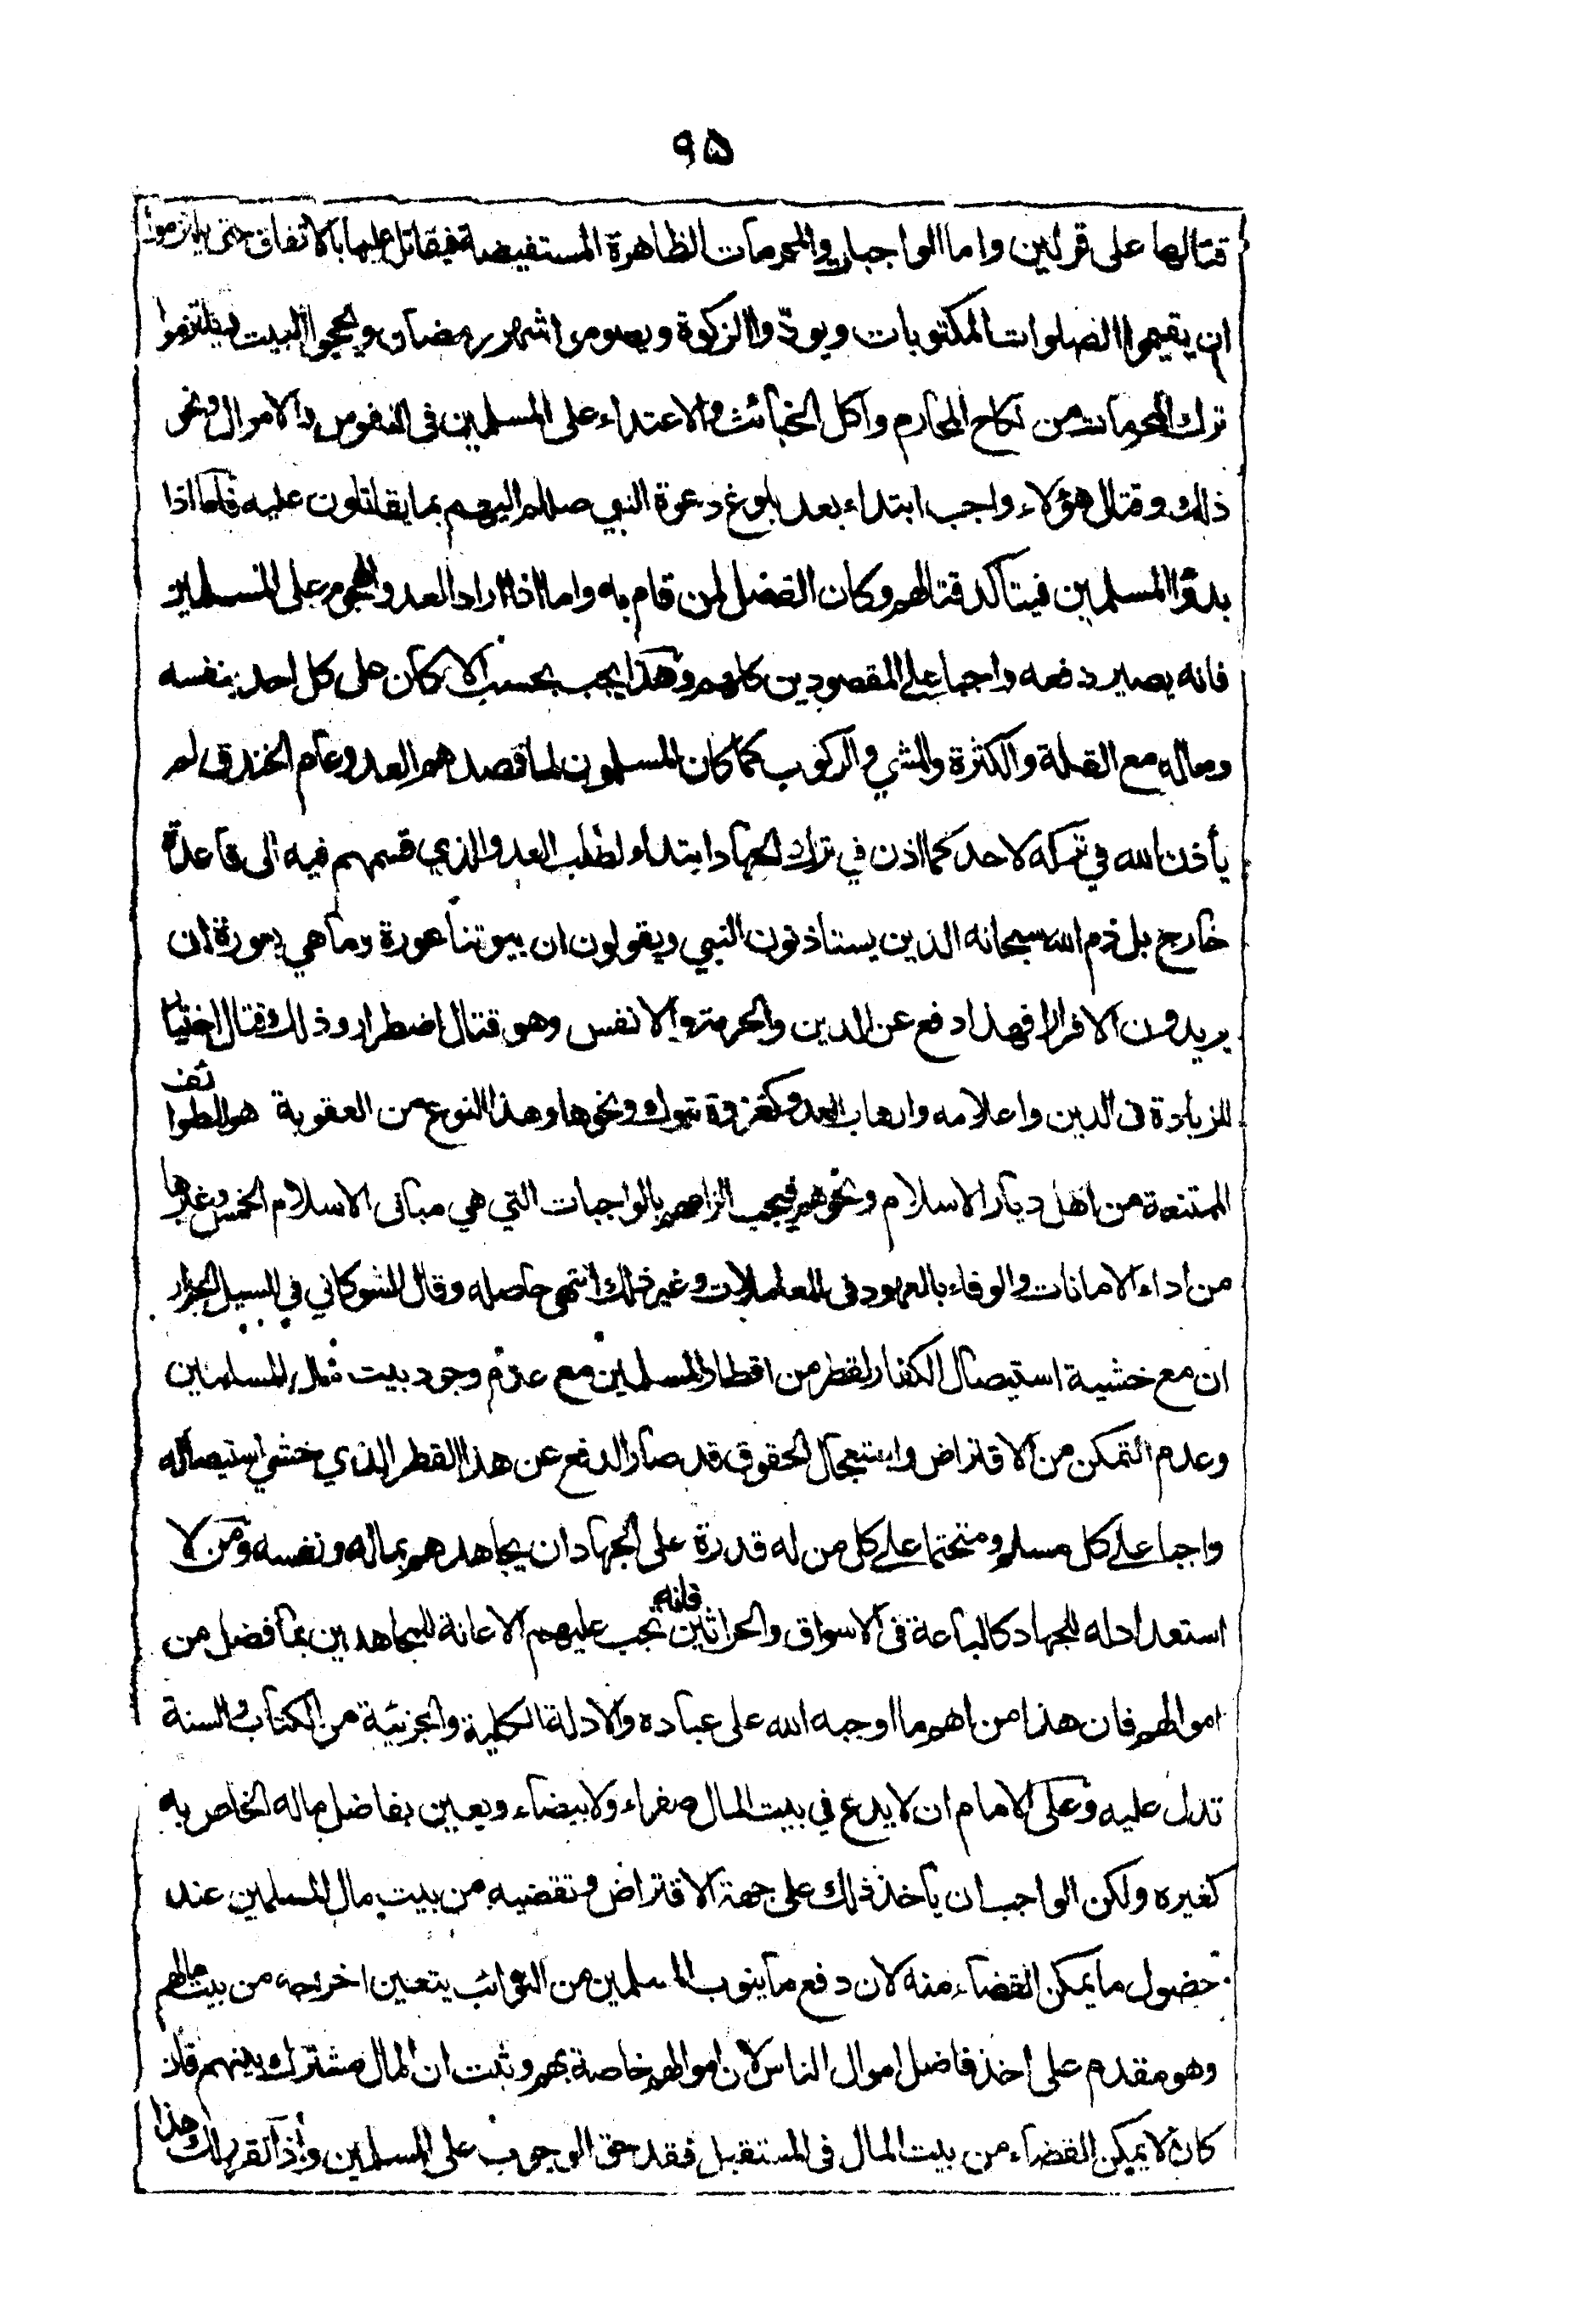 ٩٥
قتالها على قولين واما الواجبات والمحرمات الظاهرة المستفيضة فيقاتل عليها بالاتفاق حتى يلتزموا
ان يقيموا الصلوات المكتوبات ويودّوا الزكوة ويصوموا شهر رمضان ويحجوا البيت ويلتزموا
ترك المحرمات من نكاح المحارم واكل الخبائث والاعتداء على المسلمين فى النفوس والاموال ونحو
ذلك وقتال هؤلاء واجب ابتداء بعد بلوغ دعوة النبي صللم اليهم بما يقاتلون عليه فاما اذا
بدؤا المسلمين فيتأكد قتالهم وكان الفضل لمن قام به واما اذا اراد العدو الهجوم على المسلمين
فانه يصير دفعه واجبا على المقصودين كلهم وهذا يجب بحسب الامكان على كل احد بنفسه
وماله مع القلة والكثرة والمشي والركوب كما كان المسلمون لما قصدهم العدو عام الخندق لم
يأذن الله في تركه لاحد كما اذن في ترك الجهاد ابتداء لطلب العدو الذي قسمهم فيه الى قاعد و
خارج بل ذم الله سبحانه الذين يستاذنون النبي ويقولون ان بيوتنا عورة وما هي بعورة ان
يريدون الا فرارا فهذا دفع عن الدين والحرمة والانفس وهو قتال اضطرار وذلك قتال اختيار
للزيادة فى الدين واعلامه وارهاب العدو كغزوة تبوك ونحوها وهذا النوع من العقوبة هو للطوائف
الممتنعة من اهل ديار الاسلام ونحوهم فيجب الزامهم بالواجبات التي هي مبانى الاسلام الخمس وغيرها
من اداء الامانات والوفاء بالعهود فى المعاملات وغير ذلك انتهى حاصله وقال الشوكاني في السيل الجرار
ان مع خشية استيصال الكفار لقطر من اقطار المسلمين مع عدم وجود بيت مال المسلمين
وعدم التمكن من الاقتراض واستعجال الحقوق قد صار الدفع عن هذا القطر الذي خشي استيصاله
واجبا على كل مسلم ومتحتما على كل من له قدرة على الجهاد ان يجاهدهم بماله ونفسه ومن لا
استعداد له للجهاد كالباعة فى الاسواق والحراثين فانه يجب عليهم الاعانة للمجاهدين بما فضل من
اموالهم فان هذا من اهم ما اوجبه الله على عباده والادلة الكلية والجزئية من الكتاب والسنة
تدل عليه وعلى الامام ان لا يدع في بيت المال صفراء ولا بيضاء ويعين بفاضل ماله الخاص به
كغيره ولكن الواجب ان يأخذ ذلك على جهة الاقتراض وتقضيه من بيت مال المسلمين عند
حضول ما يمكن القضاء منه لان دفع ما ينوب المسلمين من النوائب يتعين اخراجه من بيت مالهم
وهو مقدم على اخذ فاضل اموال الناس لان اموالهم خاصة بهم وثبت ان المال مشترك بينهم فان
كان لا يمكن القضاء من بيت المال فى المستقبل فقد حق الوجوب على المسلمين واذا تقرر لك هذا